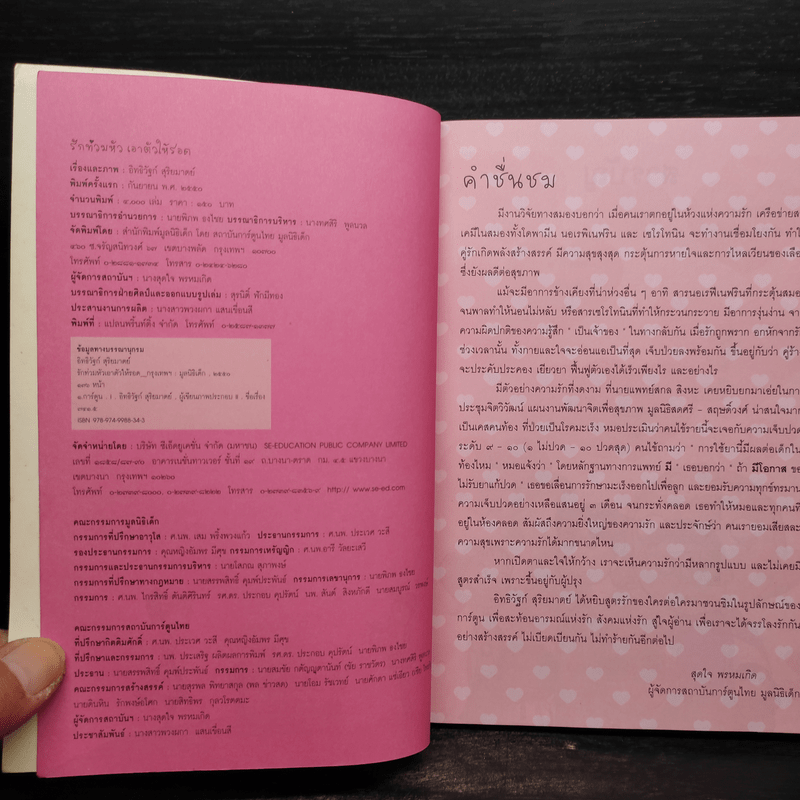 รักท่วมหัว เอาตัวให้รอด
เรื่องและภาพ : อิทธิวัฐก์ สุริยมาตย์
พิมพ์ครั้งแรก : กันยายน พ.ศ. ๒๕๕๐
จำนวนพิมพ์ : ๔,๐๐๐ เล่ม ราคา : ๑๕๐ บาท
บรรณาธิการอำนวยการ : นายพิภพ ธงไชย บรรณาธิการบริหาร : นางทศสิริ พูลนวล
จัดพิมพ์โดย : สำนักพิมพ์มูลนิธิเด็ก โดย สถาบันการ์ตูนไทย มูลนิธิเด็ก
๔๖๐ ซ.จรัญสนิทวงศ์ ๖๙ เขตบางพลัด กรุงเทพฯ ๑๐๗๐๐
ผู้จัดการสถาบันฯ : นางสุดใจ พรหมเกิด
บรรณาธิการฝ่ายศิลป์และออกแบบรูปเล่ม : สุรนิตี้ พักมีทอง
ประสานงานการผลิต : นางสาวพวงผกา แสนเขื่อนสี
พิมพ์ที่ : แปลนพริ้นท์ติ้ง จำกัด
ข้อมูลทางบรรณานุกรม
อิทธิวัฐก์ สุริยมาตย์
รักท่วมหัวเอาตัวให้รอด__กรุงเทพฯ : มูลนิธิเด็ก : ๒๕๕๐
๑๗๖ หน้า
๑.การ์ตูน . I . อิทธิวัฐก์ สุริยมาตย์ , ผู้เขียนภาพประกอบ II . ชื่อเรื่อง
๗๔๑.๕
ISBN 978-974-9988-34-3
จัดจำหน่ายโดย : บริษัท ซีเอ็ดยูเคชั่น จำกัด (มหาชน) SE-EDUCATION PUBLIC COMPANY LIMITED
อาคารเนชั่นทาวเวอร์ ชั้นที่ ๑๙ ถ.บางนา-ตราด กม. ๔.๕ แขวงบางนา
เขตบางนา กรุงเทพฯ ๑๐๒๖๐
http://www.se-ed.com
คณะกรรมการมูลนิธิเด็ก
กรรมการที่ปรึกษาอาวุโส : ศ.นพ. เสม พริ้งพวงแก้ว ประธานกรรมการ : ศ.นพ. ประเวศ วะสี
รองประธานกรรมการ : คุณหญิงอัมพร มีศุข กรรมการเหรัญญิก : ศ.นพ.อารี วัลยะเสวี
กรรมการและประธานกรรมการบริหาร : นายโสภณ สุภาพงษ์
กรรมการที่ปรึกษาทางกฎหมาย : นายสรรพสิทธิ์ คุมพ์ประพันธ์ กรรมการเลขานุการ : นายพิภพ ธงไชย
กรรมการ : ศ.นพ. ไกรสิทธิ์ ตันติศิรินทร์ รศ.ดร. ประกอบ คุปรัตน์ นพ. สันต์ สิงหภักดี นายสมบูรณ์
คณะกรรมการสถาบันการ์ตูนไทย
ที่ปรึกษากิตติมศักดิ์ : ศ.นพ. ประเวศ วะสี คุณหญิงอัมพร มีศุข
ที่ปรึกษาและกรรมการ : นพ. ประเสริฐ ผลิตผลการพิมพ์ รศ.ดร. ประกอบ คุปรัตน์ นายพิภพ ธงไชย
ประธาน : นายสรรพสิทธิ์ คุมพ์ประพันธ์ กรรมการ : นายสมชัย กตัญญุตานันท์ (ชัย ราชวัตร) นางทศสิริ
คณะกรรมการสร้างสรรค์ : นายสุรพล พิทยาสกุล (พล ข่าวสด) นายโอม รัชเวทย์ นายศักดา
นายต้นหิน รักพงษ์อโศก นายสิทธิพร กุลวโรตตมะ
ผู้จัดการสถาบันฯ : นางสุดใจ พรหมเกิด
ประชาสัมพันธ์ : นางสาวพวงผกา แสนเขื่อนสี
คำชื่นชม
มีงานวิจัยทางสมองบอกว่า เมื่อคนเราตกอยู่ในห้วงแห่งความรัก เครือข่ายส
เคมีในสมองทั้งโดพามีน นอเรพิเนพริน และ เซโรโทนิน จะทำงานเชื่อมโยงกัน ทำใ
คู่รักเกิดพลังสร้างสรรค์ มีความสุขสูงสุด กระตุ้นการหายใจและการไหลเวียนของเลือ
ซึ่งยังผลดีต่อสุขภาพ
แม้จะมีอาการข้างเคียงที่น่าห่วงอื่น ๆ อาทิ สารนอเรฟิเนพรินที่กระตุ้นสมอ
จนพาลทำให้นอนไม่หลับ หรือสารเซโรโทนินที่ทำให้กระวนกระวาย มีอาการงุ่นง่าน จา
ความผิดปกติของความรู้สึก " เป็นเจ้าของ " ในทางกลับกัน เมื่อรักถูกพราก อกหักจากรั
ช่วงเวลานั้น ทั้งกายและใจจะอ่อนแอเป็นที่สุด เจ็บป่วยลงพร้อมกัน ขึ้นอยู่กับว่า คู่ร้า
จะประคับประคอง เยียวยา ฟื้นฟูตัวเองได้เร็วเพียงไร และอย่างไร
มีตัวอย่างความรักที่งดงาม ที่นายแพทย์สกล สิงหะ เคยหยิบยกมาเอ่ยในกา
ประชุมจิตวิวัฒน์ แผนงานพัฒนาจิตเพื่อสุขภาพ มูลนิธิสดศรี - สฤษดิ์วงศ์ น่าสนใจมา
เป็นเคสคนท้อง ที่ป่วยเป็นโรคมะเร็ง หมอประเมินว่าคนไข้รายนี้จะเจอกับความเจ็บปวด
ระดับ ๙ - ๑๐ (๑ ไม่ปวด - ๑๐ ปวดสุด) คนไข้ถามว่า " การใช้ยานี้มีผลต่อเด็กใน
ท้องไหม " หมอแจ้งว่า " โดยหลักฐานทางการแพทย์ มี " เธอบอกว่า " ถ้า มีโอกาส ขอ
ไม่รับยาแก้ปวด " เธอขอเลื่อนการรักษามะเร็งออกไปเพื่อลูก และยอมรับความทุกข์ทรมาน
ความเจ็บปวดอย่างเหลือแสนอยู่ ๓ เดือน จนกระทั่งคลอด เธอทำให้หมอและทุกคนที่
อยู่ในห้องคลอด สัมผัสถึงความยิ่งใหญ่ของความรัก และประจักษ์ว่า คนเรายอมเสียสละ
ความสุขเพราะความรักได้มากขนาดไหน
หากเปิดตาและใจให้กว้าง เราจะเห็นความรักว่ามีหลากรูปแบบ และไม่เคยมี
สูตรสำเร็จ เพราะขึ้นอยู่กับผู้ปรุง
อิทธิวัฐก์ สุริยมาตย์ ได้หยิบสูตรรักของใครต่อใครมาชวนชิมในรูปลักษณ์ของ
การ์ตูน เพื่อสะท้อนอารมณ์แห่งรัก สังคมแห่งรัก สู่ใจผู้อ่าน เพื่อเราจะได้จรรโลงรักกัน
อย่างสร้างสรรค์ ไม่เบียดเบียนกัน ไม่ทำร้ายกันอีกต่อไป
สุดใจ พรหมเกิด
ผู้จัดการสถาบันการ์ตูนไทย มูลนิธิเด็ก